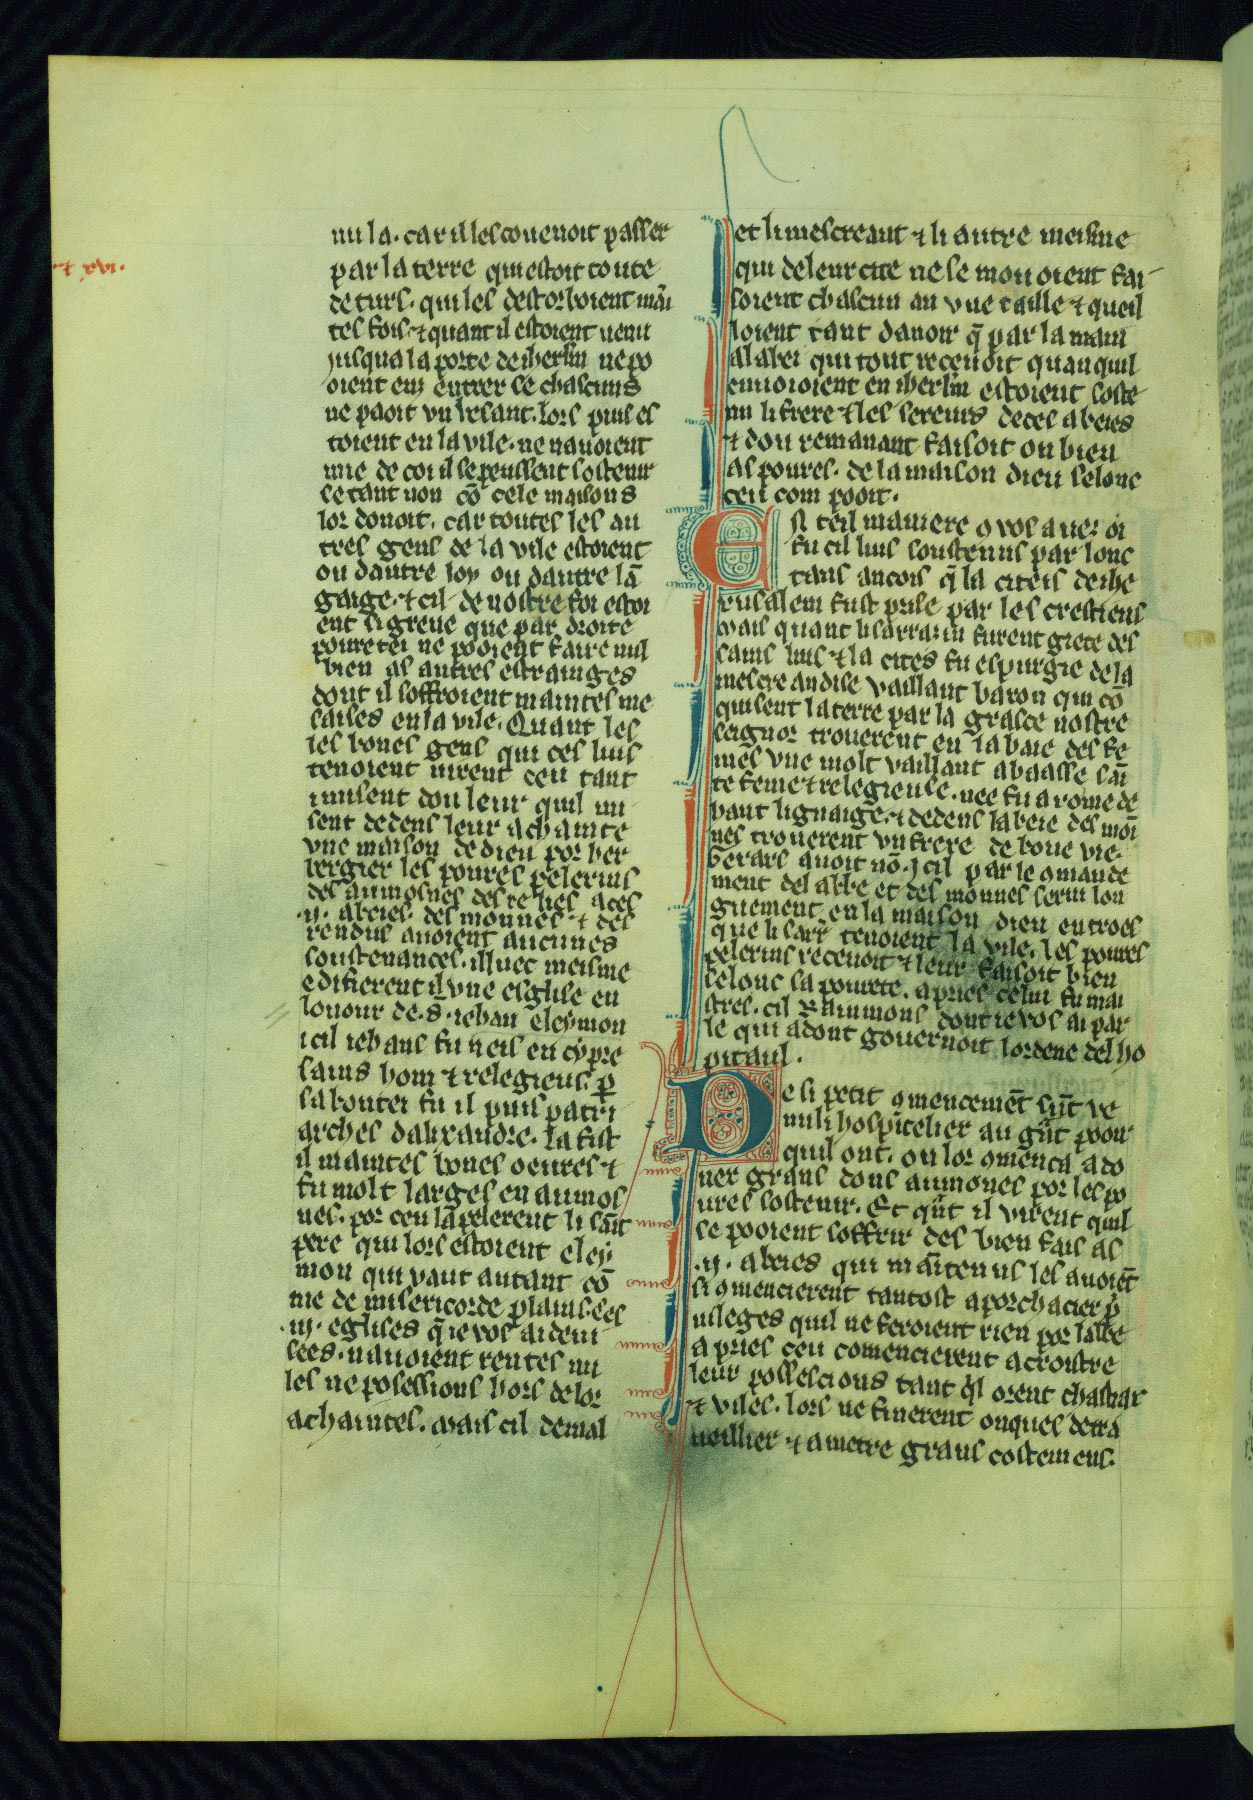 et xvi.
nu la. car il les couenoit passer
par la terre qui estoit toute
de turs. qui les destorboient māi
tes fois. ⁊ quant il estoient uenu
iusqua la porte de iherlm̄ ne po
oient enz entrer se chascuns
ne paoit vn besant. lors puis es
toient en la vile. ne nauoient
mie de coi il se peussent sostenir
se tant non cō cele maisons
lor donoit. car toutes les au
tres gens de la vile estoient
ou dautre loy ou dautre lā
gaige. ⁊ cil de nostre foi estoi
ent si greue que par droite
pouretei ne pooient faire nul
bien as autres estrainges
dont il soffroient maintes me
saises en la vile. Quant les
les bones gens qui ces luis
tenoient uirent ceu tant
i misent dou leur quil mi
sent dedens leur achainte
vne maison de dieu por her
bergier les poures pelerins
des aumosnes des reliés a ces
.ij. abeies. des monnes ⁊ des
rendus auoient aucunes
soustenances. illuec meisme
edifierent il vne esglise en
lonour de .s. iehan eleymon
icil iehans fu neis en cypre
sains hom ⁊ relegieus. ꝑ
sa bontei fu il puis patri
arches dalixandre. la fist
il maintes bones oeures ⁊
fu molt larges en aumos
nes. por ceu lapelerent li sāit
pere qui lors estoient eley
mon qui vaut autant cō
me de misericorde plains. ces
.iij. eglises q̄ ie vos ai deui
sees. nauoient rentes nu
les ne posessions hors de lor
achaintes. mais cil de mal
et li mescreant ⁊ li autre meisme
qui de leur cite ne se mouoient fai
soient chascun an vne taille ⁊ queil
loient tant dauoir q̄ par la main
al abei qui tout receuoit quanquil
enuoioient en iherlm̄ estoient soste
nu li frere ⁊ les sereurs de ces abeies
⁊ dou remanant faisoit on bien
as poures. de la maison dieu selonc
ceu com pooit.
En teil maniere ꝯ vos auez oi
fu cil luis soustenus par lonc
tans ancois q̄ la citeis de ihe
rusalem fust prise par les crestiens
mais quant li sarrazin furent giete des
sains luis ⁊ la cites fu espurgie de la
mescreandise vaillant baron qui cō
quisent la terre par la grasce nostre
seignor trouerent en labaie des fe
mes vne molt vaillant abaasse sāi
te feme ⁊ relegieuse. nee fu a rome de
haut lignaige. ⁊ dedens labeie des moī
nes trouerent vn frere de bone vie.
Gerars auoit nō. icil par le ꝯmande
ment del abbe et des monnes serui lon
guement en la maison dieu entroes
que li sarr̄ tenoient la vile. les poures
pelerins receuoit ⁊ leur faisoit bien
selonc sa pourete. apries celui fu mai
stres. cil Raimmons dont ie vos ai par
le qui adont gouernoit lordene del ho
pitaul.
De si petit ꝯmencemēt sūt ve
nu li hospitelier au gr̄nt pooir
quil ont. on lor ꝯmenca a do
ner grans dons aumones por les po
ures sostenir. Et qūt il virent quil
se pooient soffrir des bien fais as
.ij. abeies qui māitenus les auoiēt
si ꝯmencierent tantost a porchacier p̄
uileges quil ne feroient rien por labbe
apries ceu comencierent acroistre
leur possescions tant q̄l orent chastiar
⁊ viles. lors ne finerent onques de tra
ueillier ⁊ a metre grans costemens.